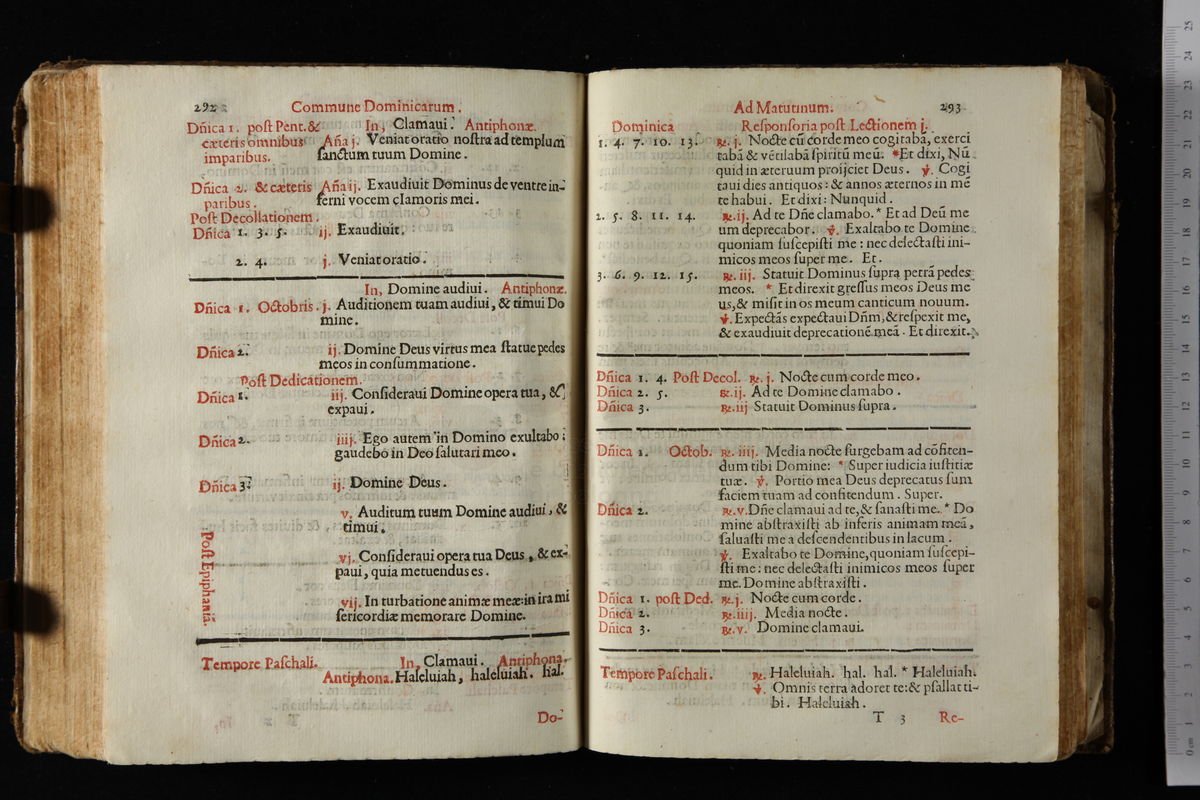 292 Commune Dominicarum.
Dñica 1. post Pent. & In, Clamaui. Antiphonæ.
cæteris omnibus Aña j. Veniat oratio nostra ad templum
imparibus. sanctum tuum Domine.
Dñica 2. & cæteris Aña ij. Exaudiuit Dominus de ventre in-
paribus. ferni vocem clamoris mei.
Post Decollationem.
Dñica 1. 3. 5. ij. Exaudiuit.
2. 4. j. Veniat oratio.
In, Domine audiui. Antiphonæ.
Dñica 1. Octobris. j. Auditionem tuam audiui, & timui Do
mine.
Dñica 2. ij. Domine Deus virtus mea statue pedes
meos in consummatione.
Post Dedicationem.
Dñica 1. iij. Consideraui Domine opera tua, &
expaui.
Dñica 2. iiij. Ego autem in Domino exultabo:
gaudebo in Deo salutari meo.
Dñica 3. ij. Domine Deus.
v. Auditum tuum Domine audiui, &
timui.
Post Epiphaniã.
vj. Consideraui opera tua Deus, & ex-
paui, quia metuendus es.
vij. In turbatione animæ meæ: in ira mi
sericordiæ memorare Domine.
Tempore Paschali. In, Clamaui. Antiphona.
Antiphona. Haleluiah, haleluiah. hal.
Do-
Ad Matutinum. 293
Dominica Responsoria post Lectionem j.
1. 4. 7. 10. 13. ℟. j. Nocte cũ corde meo cogitaba, exerci
tabã & vẽtilabã spiritũ meũ. *Et dixi, Nũ
quid in æteruum proijciet Deus. ℣. Cogi
taui dies antiquos: & annos æternos in mẽ
te habui. Et dixi: Nunquid.
2. 5. 8. 11. 14. ℟. ij. Ad te Dñe clamabo. * Et ad Deũ me
um deprecabor. ℣. Exaltabo te Domine
quoniam suscepisti me: nec delectasti ini-
micos meos super me. Et.
3. 6. 9. 12. 15. ℟. iij. Statuit Dominus supra petrã pedes
meos. * Et direxit gressus meos Deus me
us, & misit in os meum canticum nouum.
℣. Expectãs expectaui Dñm, & respexit me,
& exaudiuit deprecationẽ meã. Et direxit.
Dñica 1. 4. Post Decol. ℟. j. Nocte cum corde meo.
Dñica 2. 5. ℟. ij. Ad te Domine clamabo.
Dñica 3. ℟. iij Statuit Dominus supra.
Dñica 1. Octob. ℟. iiij. Media nocte surgebam ad cõfiten-
dum tibi Domine: * Super iudicia iustitiæ
tuæ. ℣. Portio mea Deus deprecatus sum
faciem tuam ad confitendum. Super.
Dñica 2. ℟. v. Dñe clamaui ad te, & sanasti me. * Do
mine abstraxisti ab inferis animam meã,
saluasti me a descendentibus in lacum.
℣. Exaltabo te Domine, quoniam suscepi-
sti me: nec delectasti inimicos meos super
me. Domine abstraxisti.
Dñica 1. post Ded. ℟. j. Nocte cum corde.
Dñica 2. ℟. iiij. Media nocte.
Dñica 3. ℟. v. Domine clamaui.
Tempore Paschali. ℟. Haleluiah. hal. hal. * Haleluiah.
℣. Omnis terra adoret te: & psallat ti-
bi. Haleluiah.
T 3 Re-